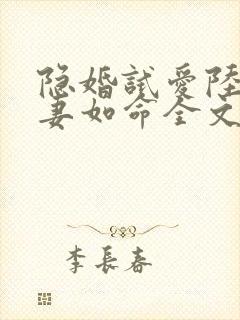 隐婚試爱陸
妻如命全文
李長春